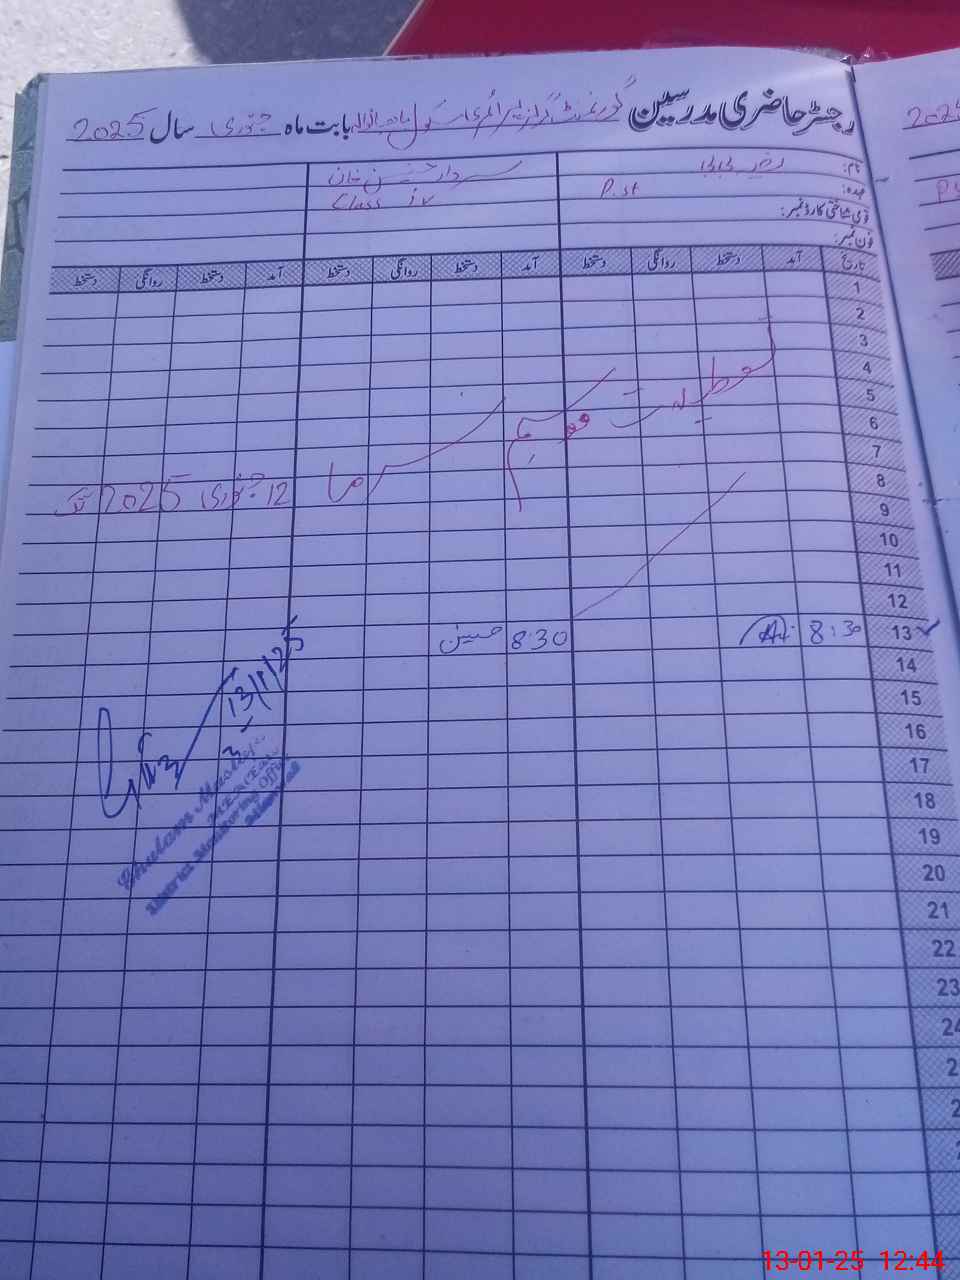 رجسٹر حاضری مدرسین گورنمنٹ گرلز پرائمری سکول بابت ماہ جنوری سال 2025
نام: بی بی سردار حسن خان
عہدہ: P.st Class iv
قومی شناختی کارڈ نمبر:
فون نمبر:
تاریخ آمد دستخط روانگی دستخط آمد دستخط روانگی دستخط آمد دستخط روانگی دستخط
1
2
3
4
5
6
7
8
9
10
11
12
تعطیلات موسم سرما 12 جنوری 2025 تک
13 8:30 8:30 حسین
14
15
16
17
18
19
20
21
22
23
24
13/1/25
Ghulam
District Monitoring Officer
2025
13-01-25 12:44